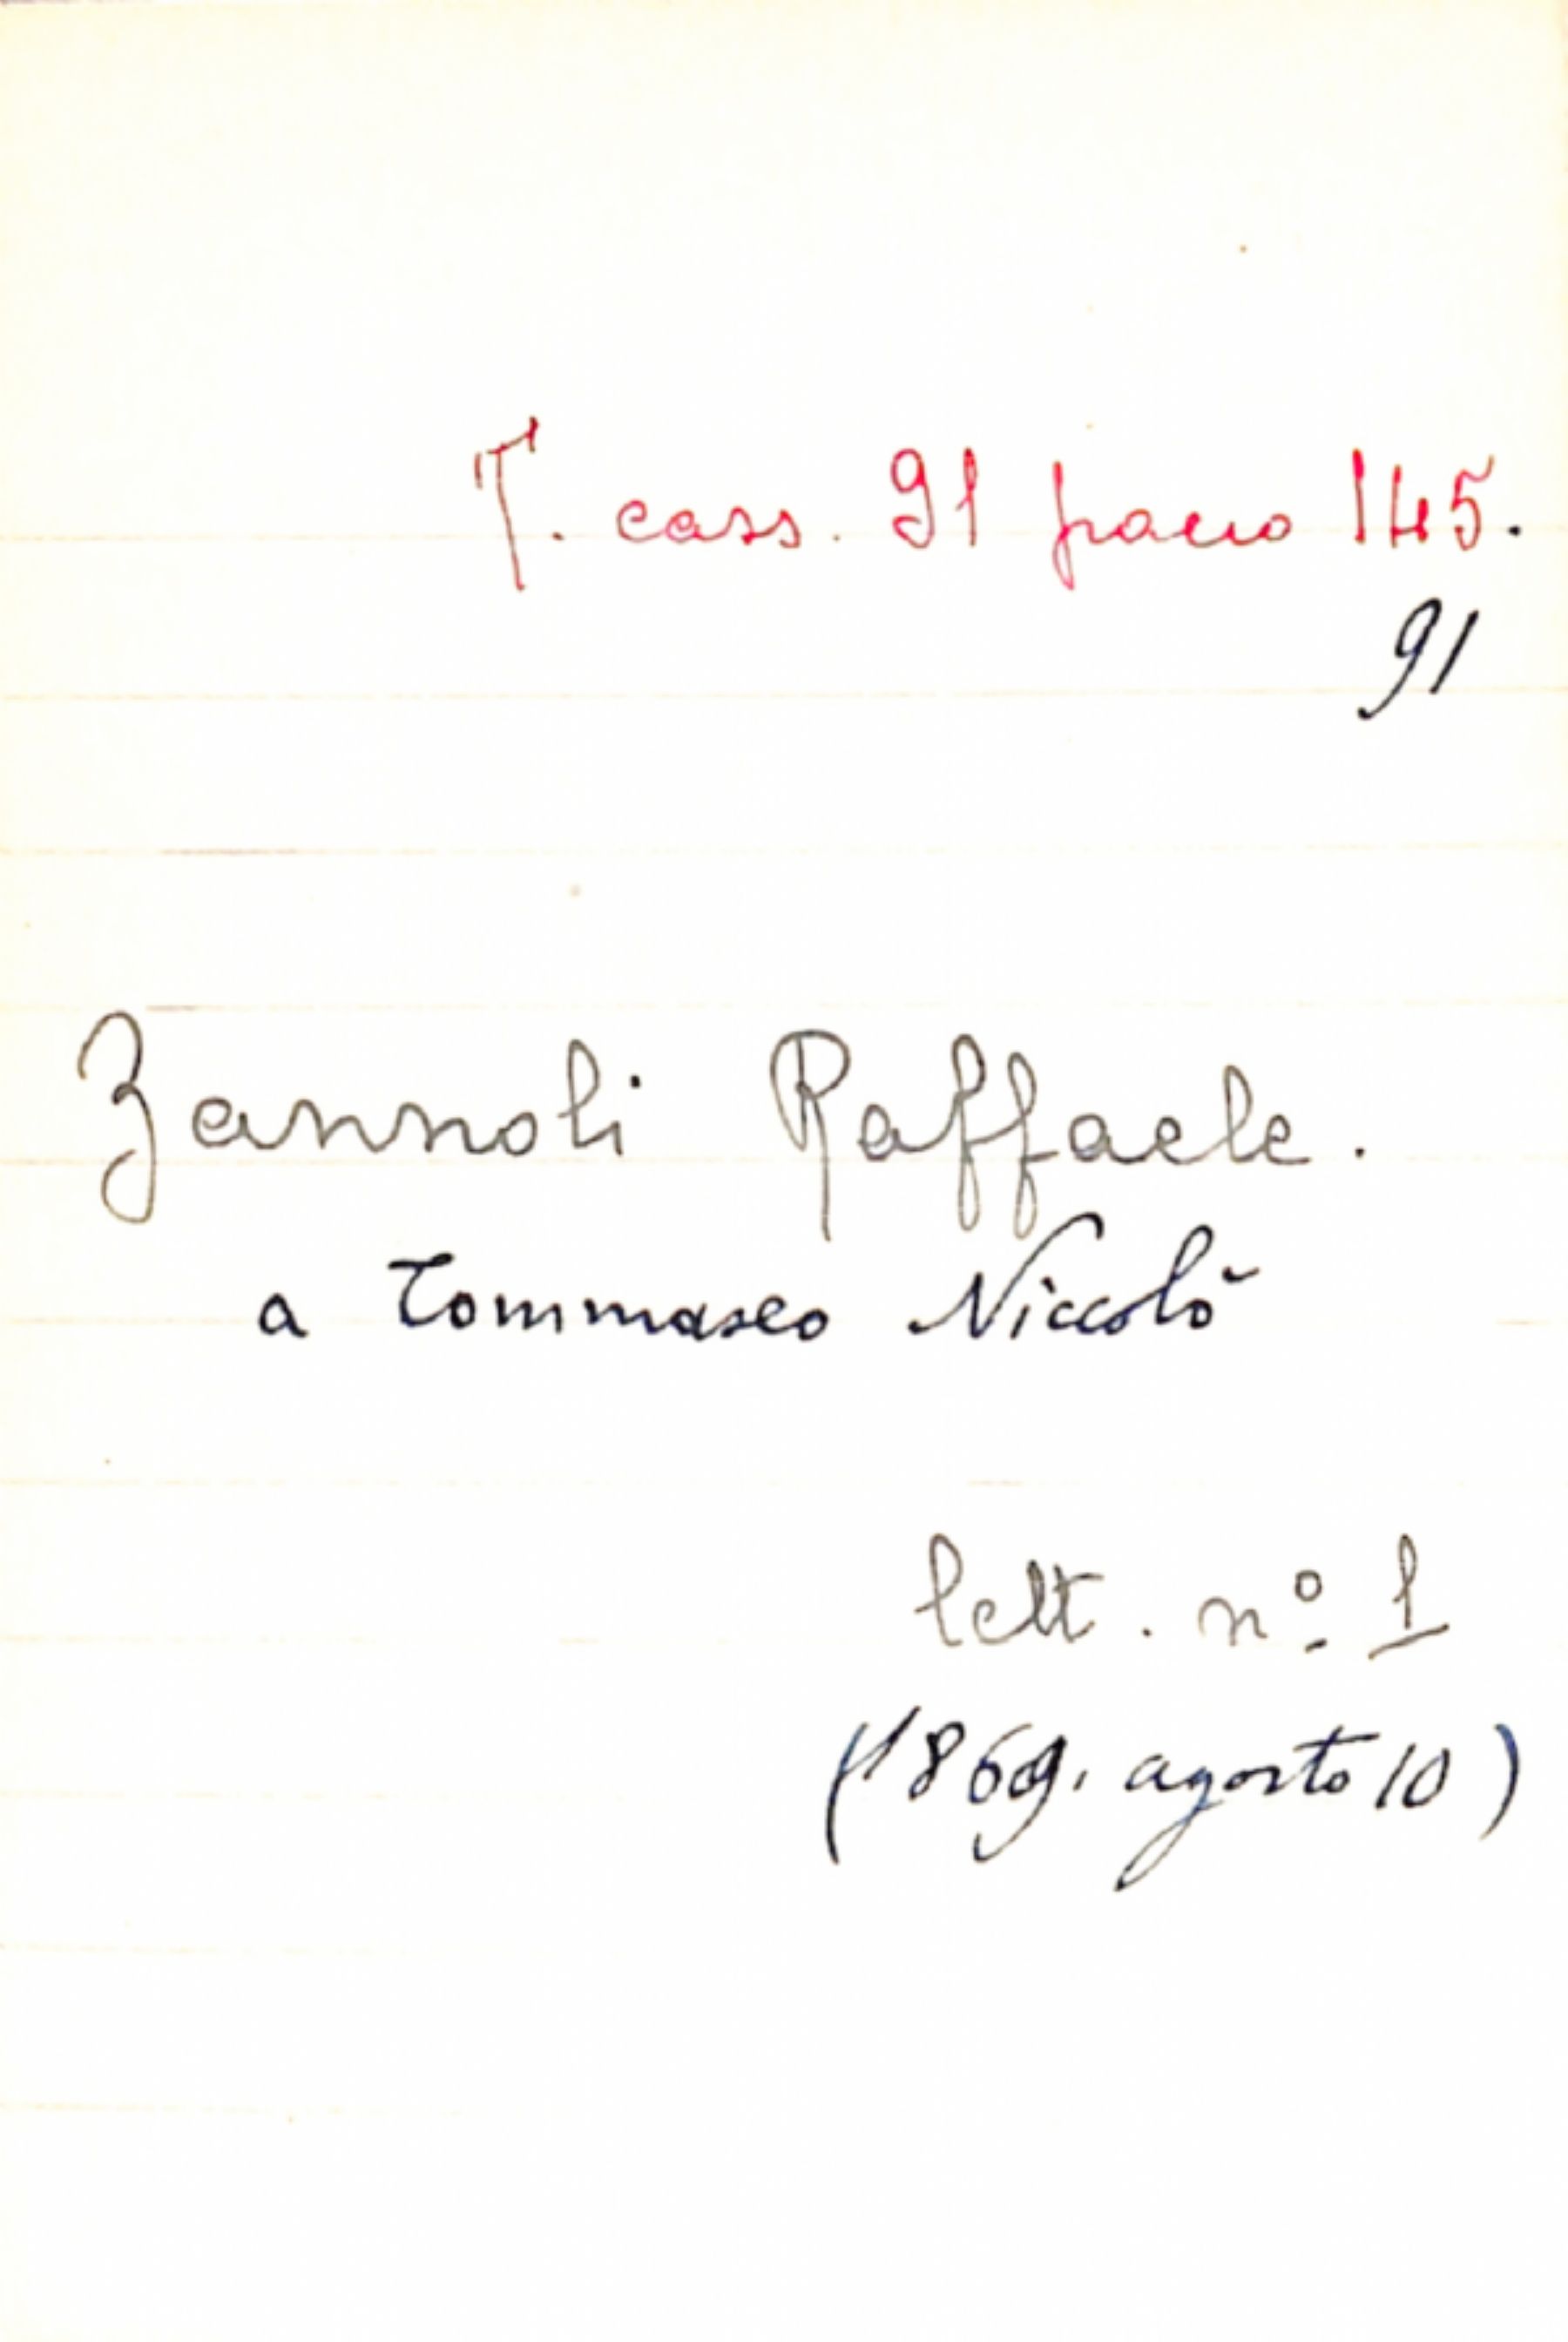 T. cass. 91 pacco 145.
91
Zannoli Raffaele.
a Tommaseo Niccolò
lett. nº 1
(1869, agosto 10)